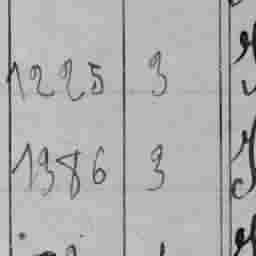 1225 3
1386 3